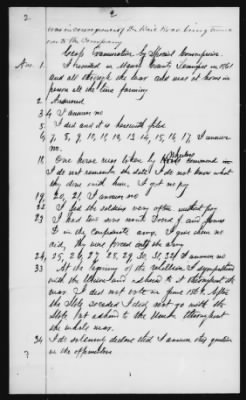 2
2
was in consequence of the Rail Road being turned
over to the Company
Cross Examination by Special Commissioner.
Ans. 1. I resided in Maury County Tennessee in 1861
and all through the war and was at home in
person all the time farming
2 Answered
3, 4 I answer no
5 I did and it is herewith filed
6, 7, 8, 9, 10, 11, 12, 13, 14, 15, 16, 17, I answer
no.
18 One horse was taken by command
I do not remember the date I do not know what
they done with him, I got no pay
19, 20, 21, I answer no
22 I fed the soldiers very often without pay
23 I had two sons
in the confederate army. I give them no
aid, they were forced into the army
24, 25, 26, 27, 28, 29, 30, 31, 32 I answer no
33 At the beginning of the rebellion I sympathized
with the Union and adhered to it throughout the
war. I did not vote in June 1861. After
the State seceded I did not go with the
State but adhered to the Union throughout
the whole war.
34 I do solemnly declare that I answer this question
in the affirmative